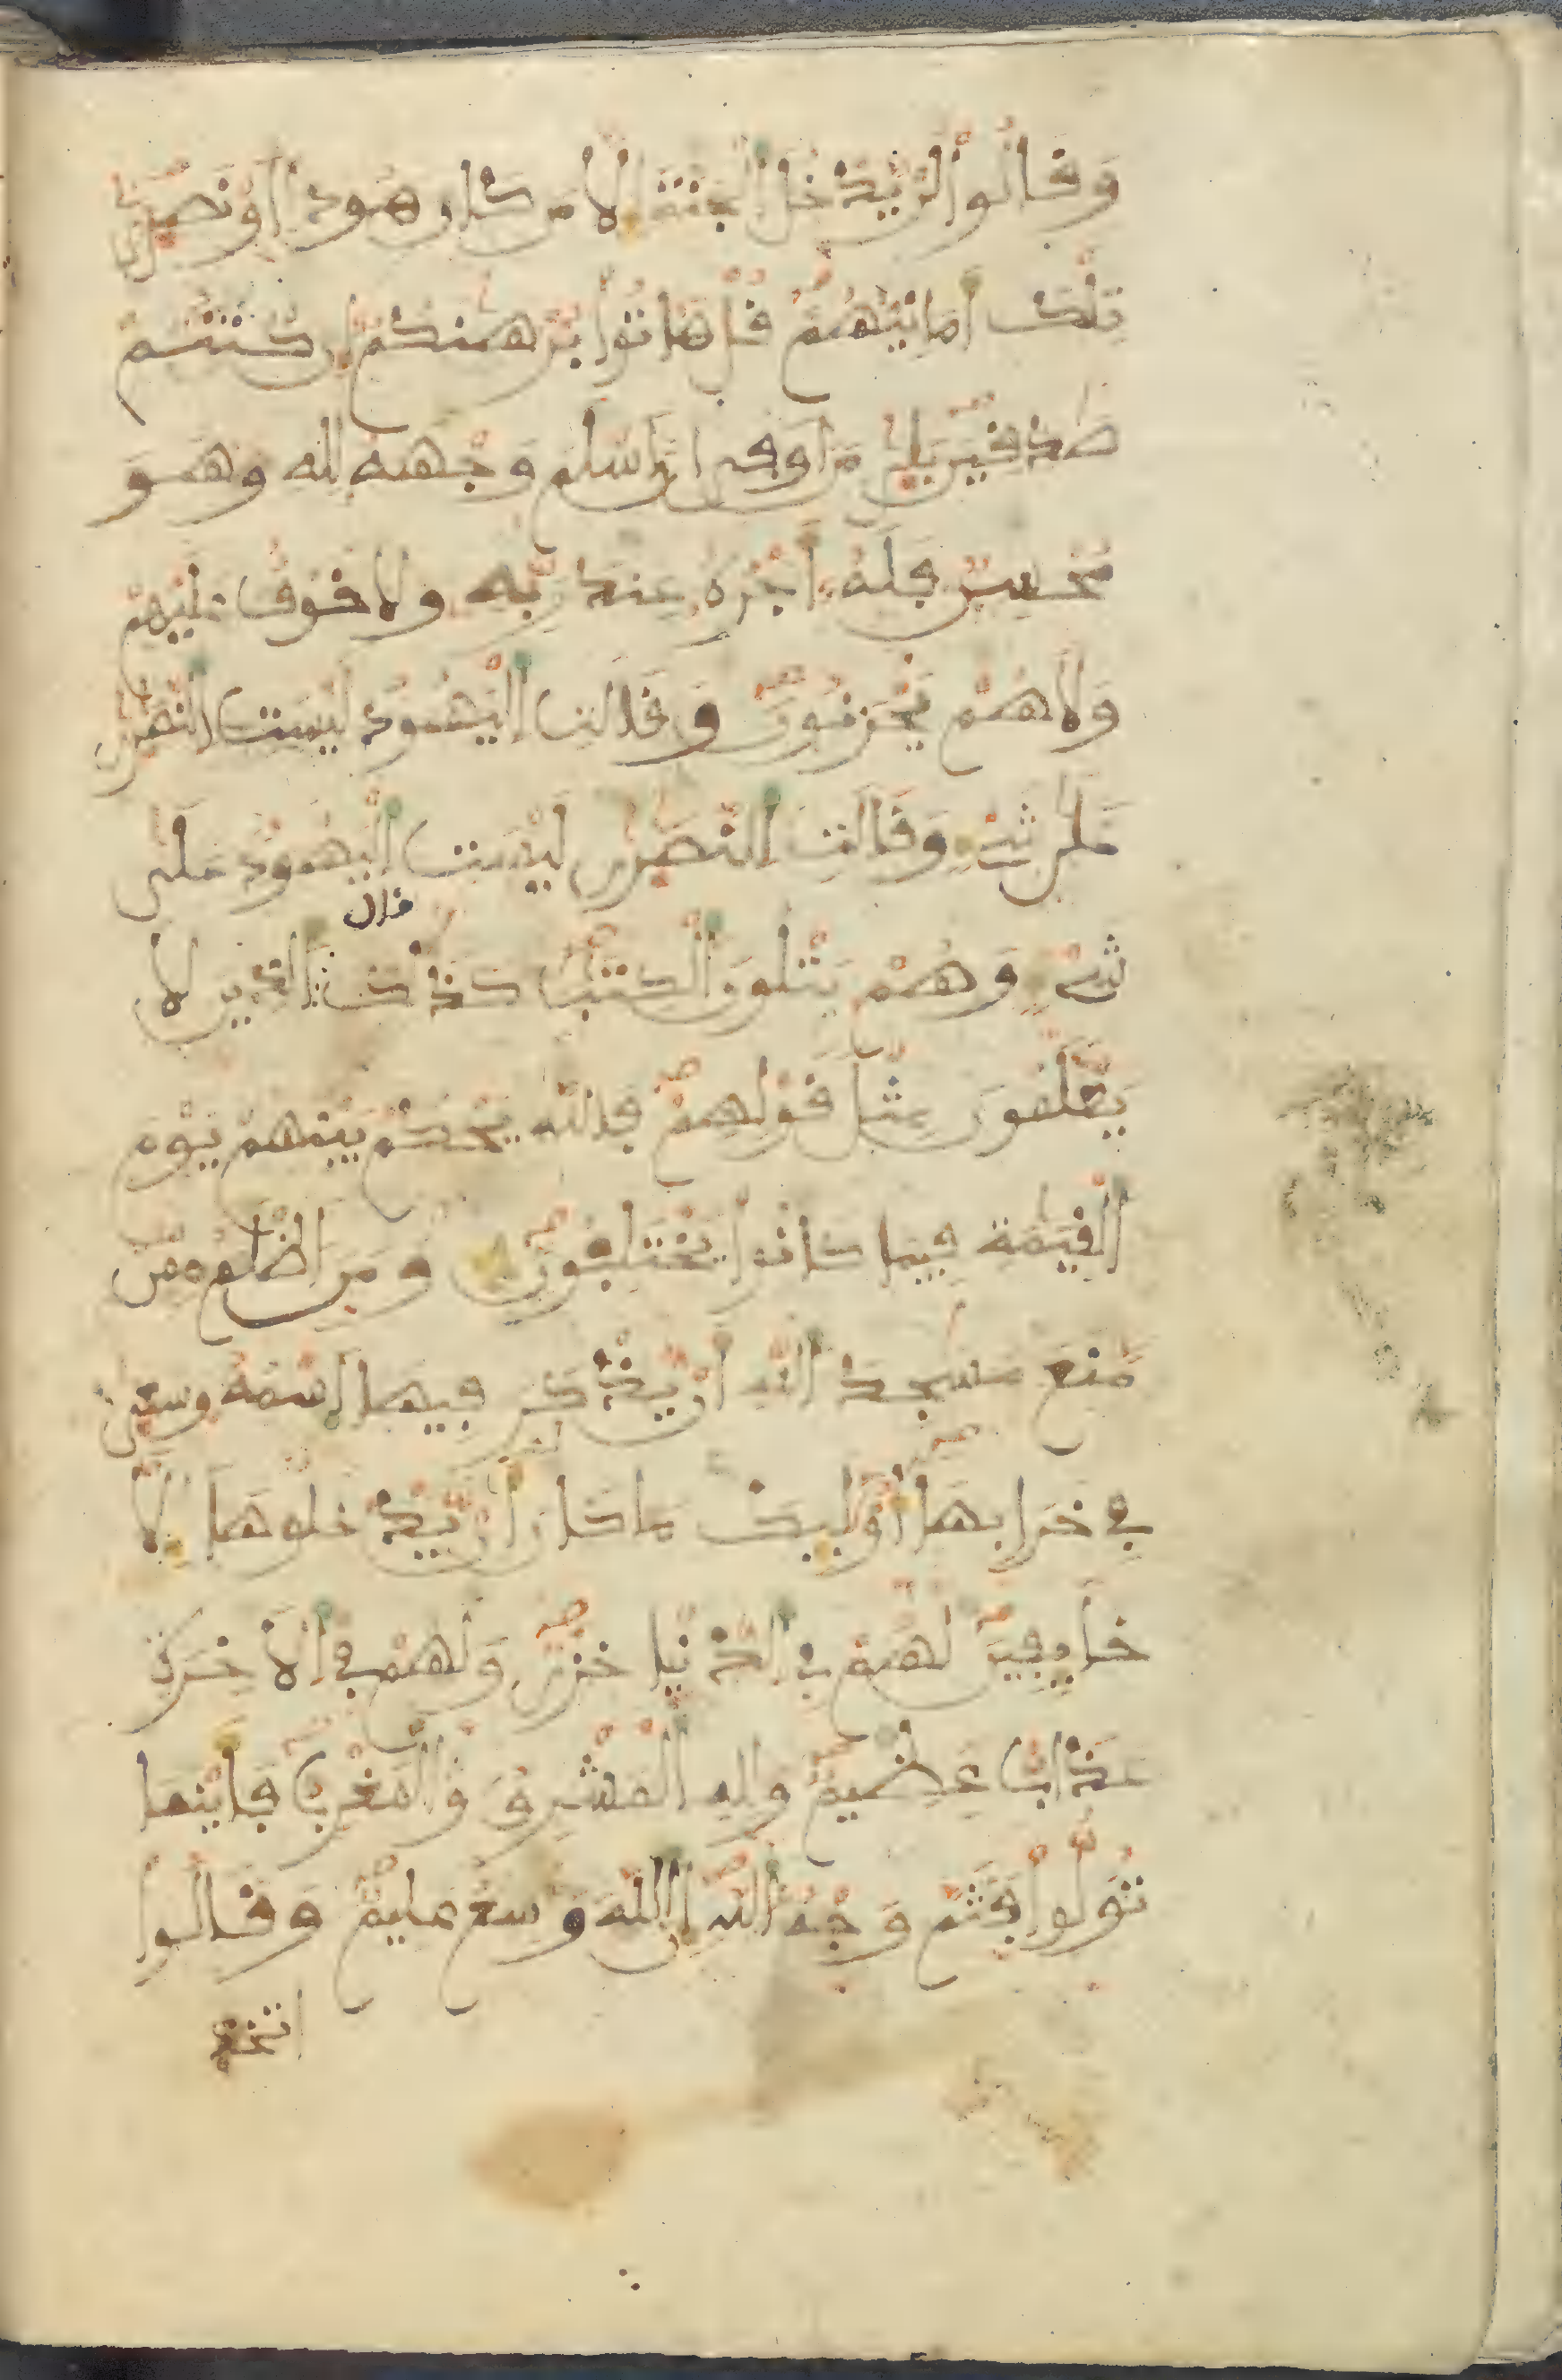 وَقَالُوا لَنْ يَّدْخُلَ الْجَنَّةَ إِلَّا مَن كَانَ هُودًا أَوْ نَصَٰرَىٰ
تِلْكَ أَمَانِيُّهُمْ قُلْ هَاتُوا بُرْهَٰنَكُمْ إِن كُنتُمْ
صَٰدِقِينَ بَلَىٰ مَنْ أَسْلَمَ وَجْهَهُ لِلهِ وَهُوَ
مُحْسِنٌ فَلَهُ أَجْرُهُ عِندَ رَبِّهِ وَلَا خَوْفٌ عَلَيْهِمْ
وَلَا هُمْ يَحْزَنُونَ وَقَالَتِ الْيَهُودُ لَيْسَتِ النَّصَٰرَىٰ
عَلَىٰ شَيْءٍ وَقَالَتِ النَّصَٰرَىٰ لَيْسَتِ الْيَهُودُ عَلَىٰ
شَيْءٍ وَهُمْ يَتْلُونَ الْكِتَٰبَ كَذَٰلِكَ قال الَّذِينَ لَا
يَعْلَمُونَ مِثْلَ قَوْلِهِمْ فَاللهُ يَحْكُمُ بَيْنَهُمْ يَوْمَ
الْقِيَٰمَةِ فِيمَا كَانُوا يَخْتَلِفُونَ وَمَنْ أَظْلَمُ مِمَّن
مَّنَعَ مَسَٰجِدَ اللهِ أَنْ يُّذْكَرَ فِيهَا اسْمُهُ وَسَعَىٰ
فِي خَرَابِهَا أُوْلَٰئِكَ مَا كَانَ لهم أَنْ يَّدْخُلُوهَا إِلَّا
خَائِفِينَ لَهُمْ فِي الدُّنْيَا خِزْيٌ وَلَهُمْ فِي الْأَخِرَةِ
عَذَابٌ عَظِيمٌ وَلِلهِ الْمَشْرِقُ وَالْمَغْرِبُ فَأَيْنَمَا
تُوَلُّوا فَثَمَّ وَجْهُ اللهِ إِنَّ اللهَ وَٰسِعٌ عَلِيمٌ وَقَالُوا
اتخذ